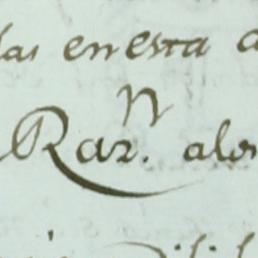 las en esta
Raz.n alos